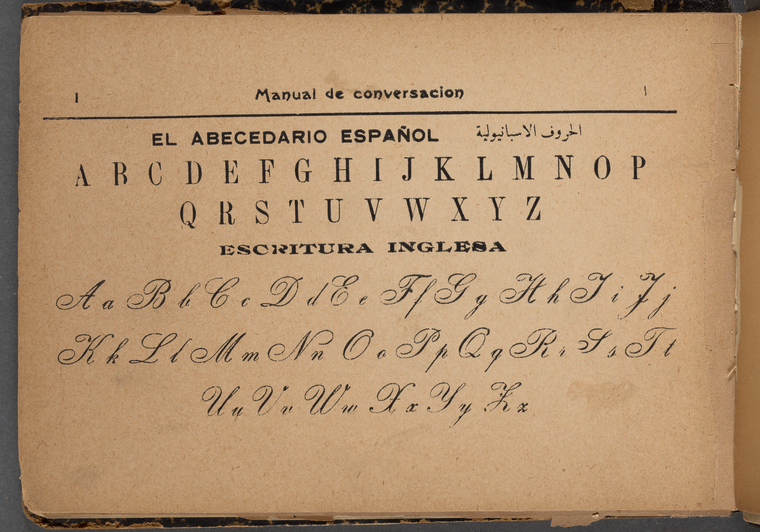 1 Manual de conversacion 1
EL ABECEDARIO ESPAÑOL الحروف الاسبانيولية
A B C D E F G H I J K L M N O P
Q R S T U V W X Y Z
ESCRITURA INGLESA
A a B b C c D d E e F f G g H h I i J j
K k L l M m N n O o P p Q q R r S s T t
U u V v W w X x Y y Z z